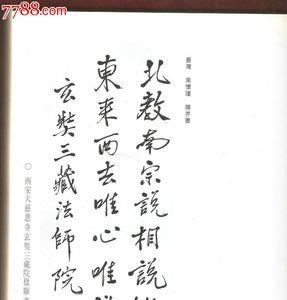 7788.com
臺灣 南懷瑾 撰并書
北教南宗說相說
東来西去唯心唯
玄奘三藏法師院
○西安大慈恩寺玄奘三藏院楹聯